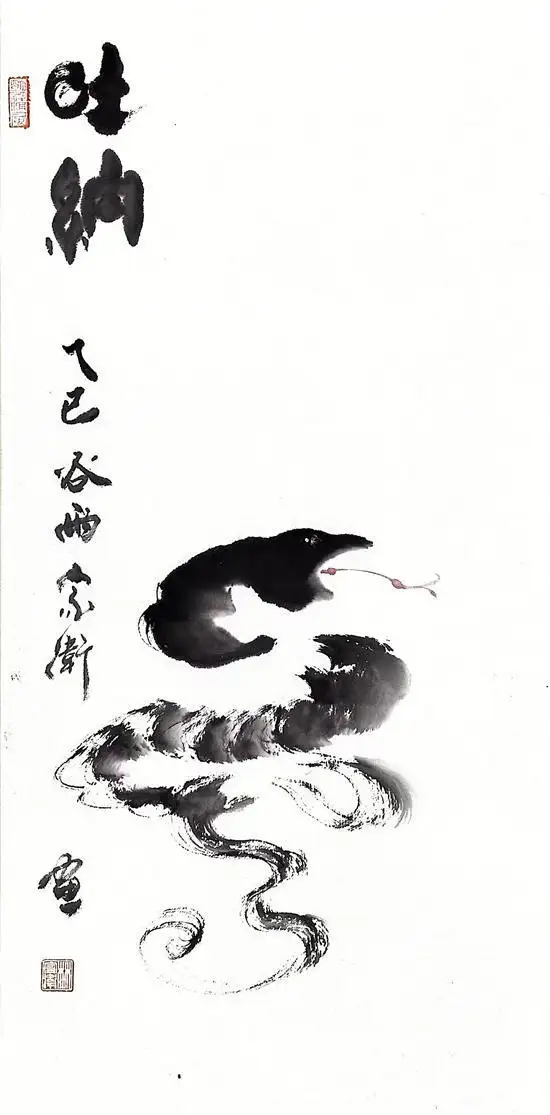 吐納
乙巳谷雨家衛
畫